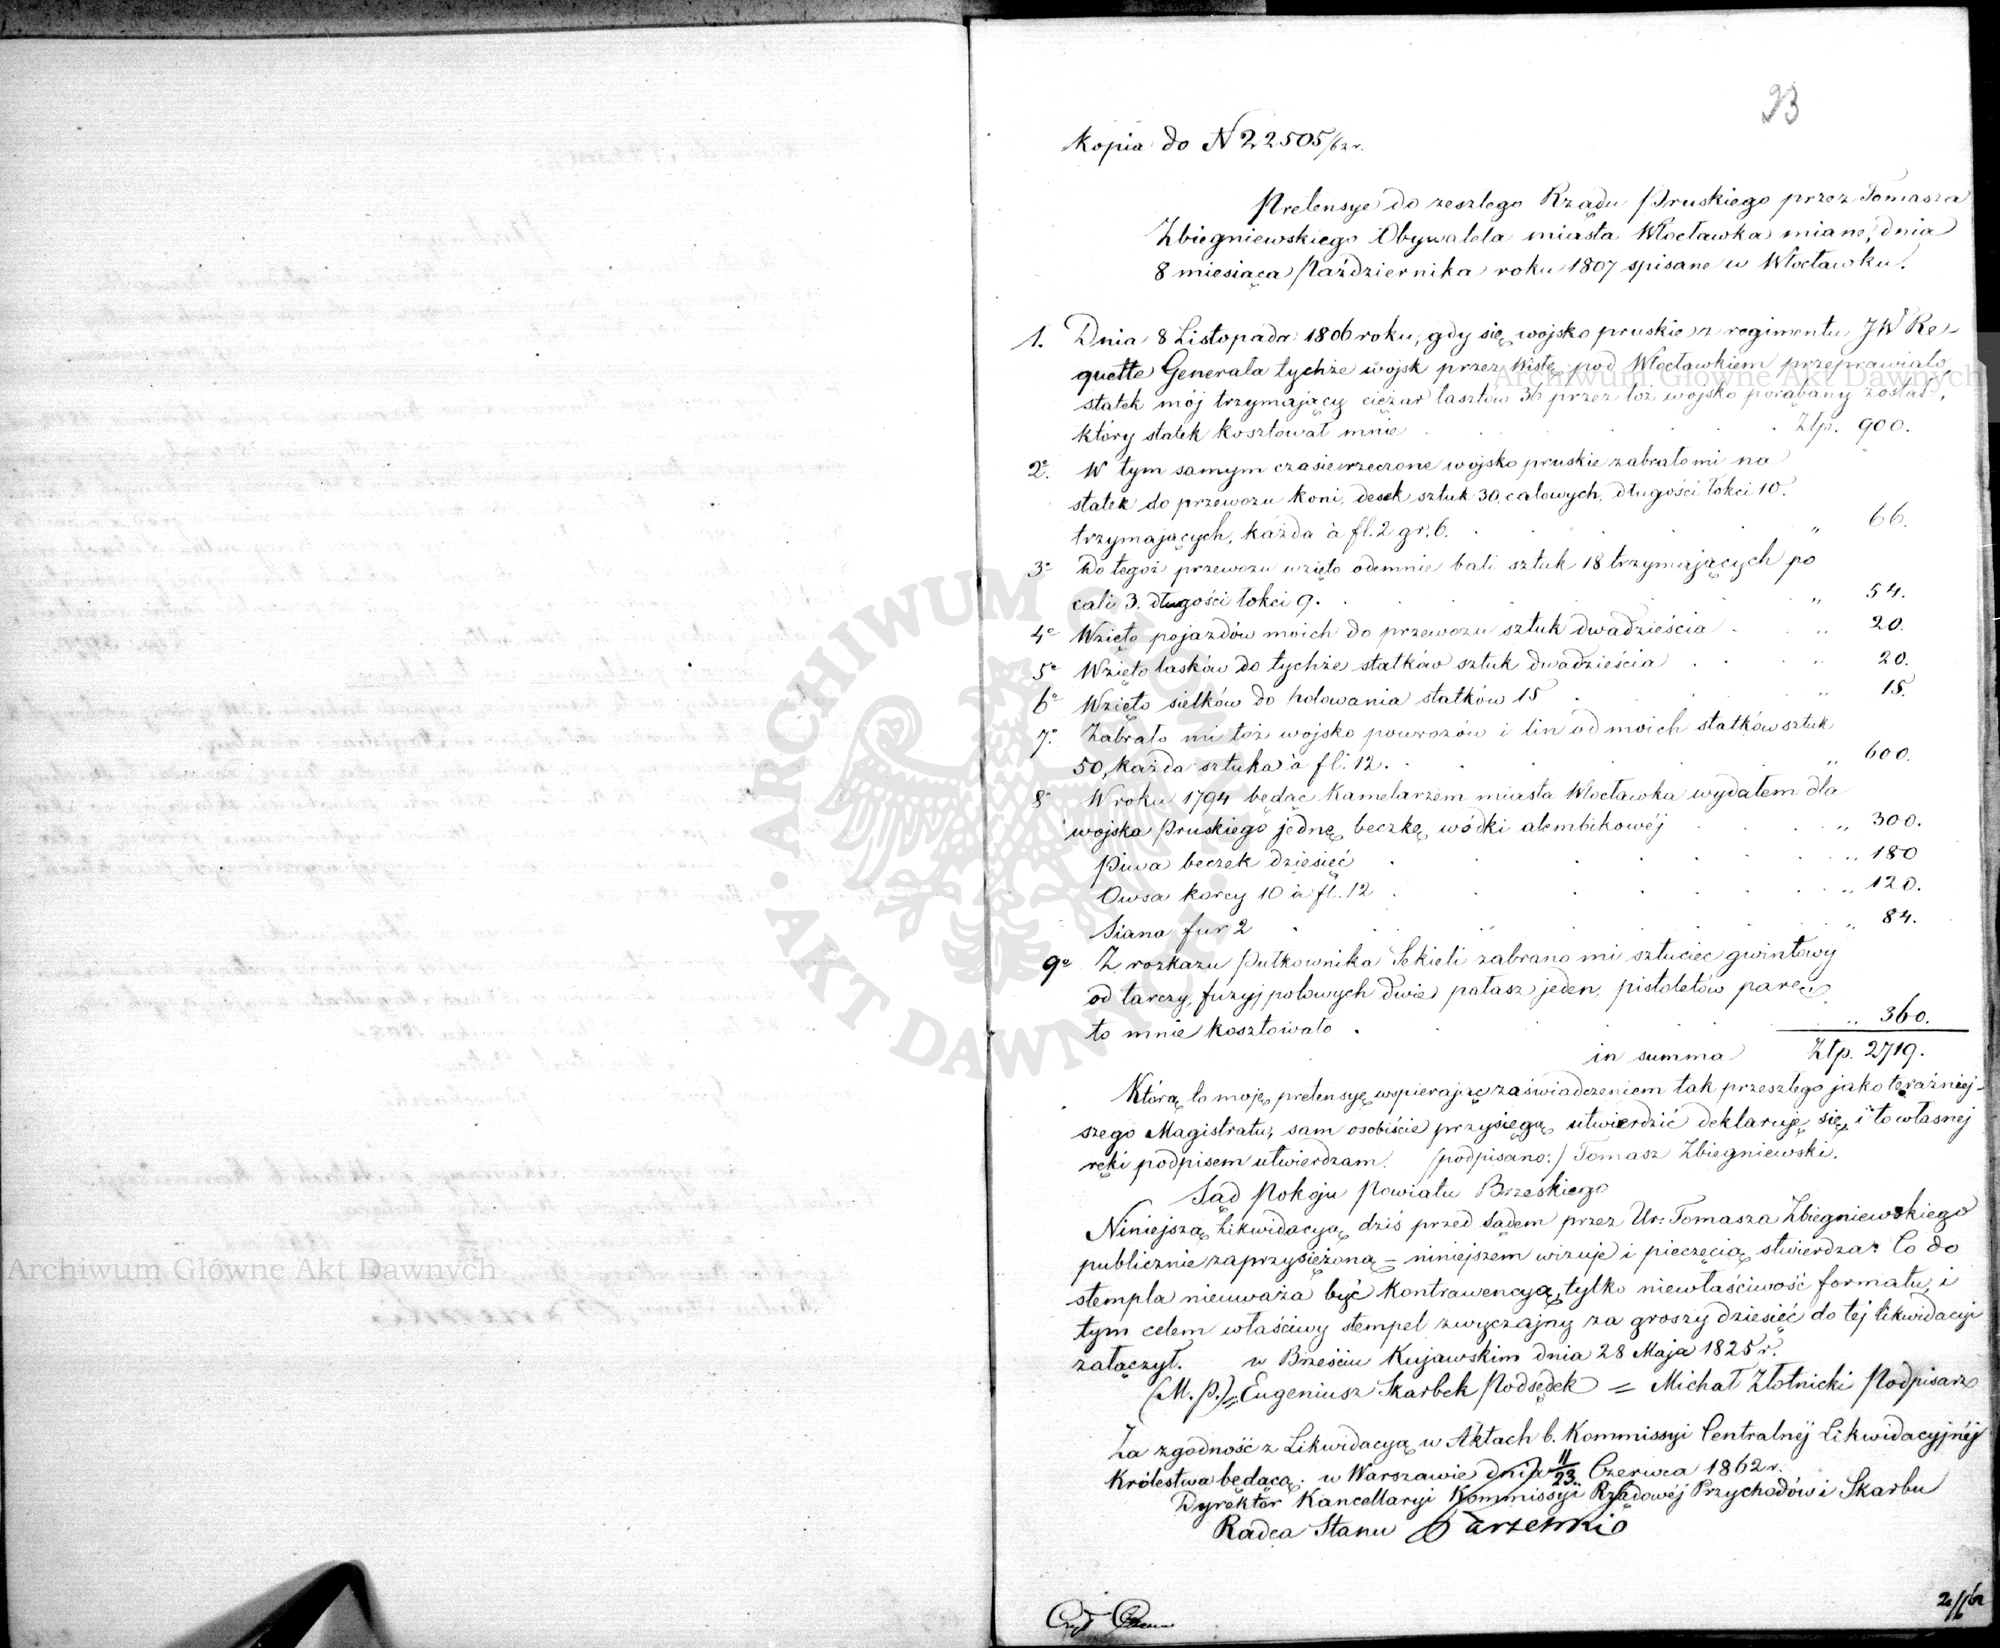 23
Kopia do N 22505/62 r.
Pretensye do zeszłego Rządu Pruskiego przez Tomasza
Zbiegniewskiego Obywatela miasta Włocławka miane, dnia
8 miesiąca Października roku 1807 spisane w Włocławku.
1. Dnia 8 Listopada 1806 roku, gdy się wojsko pruskie z regimentu JW Re-
quette Generała tychże wojsk przez Wisłę pod Włocławkiem przeprawiało,
statek mój trzymający ciężar łasztów 36 przez toż wojsko porąbany został,
który statek kosztował mnie . . . . . Złp. 900.
2e. W tym samym czasie rzeczone wojsko pruskie zabrało mi na
statek do przewozu koni, desek sztuk 30, calowych, długości łokci 10.
trzymających, każda à fl. 2 gr. 6. . . . . . " 66.
3e Do tegoż przewozu wzięto odemnie bali sztuk 18 trzymających po
cali 3. długości łokci 9. . . . . . " 54.
4e Wzięto pojazdów moich do przewozu sztuk dwadzieścia . . " 20.
5e Wzięto lasków do tychże statków sztuk dwadzieścia . . . " 20.
6e Wzięto sielków do holowania statków 15 . . . . " 15.
7e. Zabrało mi toż wojsko powrozów i lin od moich statków sztuk
50, każda sztuka à fl. 12. . . . . . " 600.
8e W roku 1794 będąc Kamelarzem miasta Włocławka wydałem dla
wojska Pruskiego jednę beczkę wódki alembikowéj . . . . " 300.
Piwa beczek dziesięć . . . . . " 180
Owsa korcy 10 à fl. 12 . . . . . " 120.
Siana fur 2 . . . . . " 84.
9e Z rozkazu Pułkownika Sekieli zabrano mi sztuciec gwintowy
od tarczy, fuzyj polowych dwie, pałasz jeden, pistoletów parę,
to mnie kosztowało . . . . . " 360.
in summa Złp. 2719.
Którą to moję pretensyę wspierając zaświadczeniem tak przeszłego jako teraźniej-
szego Magistratu, sam osobiście przysięgą utwierdzić deklaruję się, i to własnej
ręki podpisem utwierdzam. /podpisano:/ Tomasz Zbiegniewski.
Sąd Pokoju Powiatu Brzeskiego
Niniejszą Likwidacyą dziś przed Sądem przez Ur: Tomasza Zbiegniewskiego
publicznie zaprzysiężoną – niniejszem wizuje i pieczęcią stwierdza: Co do
stempla nieuważa być Kontrawencyą, tylko niewłaściwość formatu, i
tym celem właściwy stempel zwyczajny za groszy dziesięć do tej likwidacyi
załączył. w Brześciu Kujawskim dnia 28 Maja 1825 r.
(M. P.) = Eugeniusz Skarbek Podsędek = Michał Złotnicki Podpisarz
Za zgodność z Likwidacyą w Aktach b. Kommissyi Centralnéj Likwidacyjnéj
Królestwa będącą. w Warszawie dnia 11/23 Czerwca 1862 r.
Dyrektor Kancellaryi Kommissyi Rządowéj Przychodów i Skarbu
Radca Stanu
Archiwum Główne Akt Dawnych
Archiwum Główne Akt Dawnych